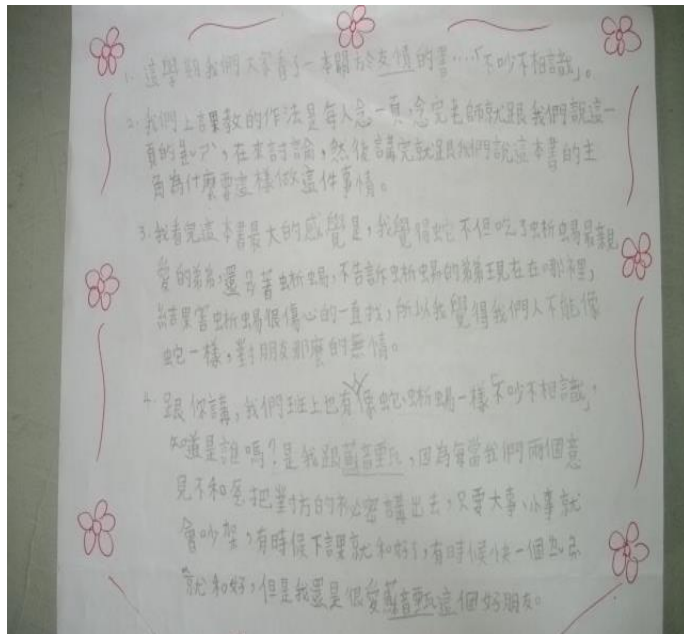 1. 這學期我們大家看了一本關於友情的書…「不吵不相識」。
2. 我們上課教的作法是每人念一頁,念完老師就跟我們說這一
頁的,在來討論,然後講完就跟我們說這本書的主
角為什麼要這樣做這件事情。
3. 我看完這本書最大的感覺是,我覺得蛇不但吃了蜥蜴最親
愛的弟弟,還蜥蜴,不告訴蜥蜴的弟弟現在在哪裡,
結果害蜥蜴很傷心的一直找,所以我覺得我們人不能像
蛇一樣,對朋友那麼的無情。
4. 跟你講,我們班上也有像蛇、蜥蜴一樣「不吵不相識」,
知道是誰嗎?是我跟,因為每當我們兩個意
見不和會把對方的祕密講出去,只要大事、小事就
會吵架,有時候下課就和好了,有時候快一個
就和好,但是我還是很愛這個好朋友。